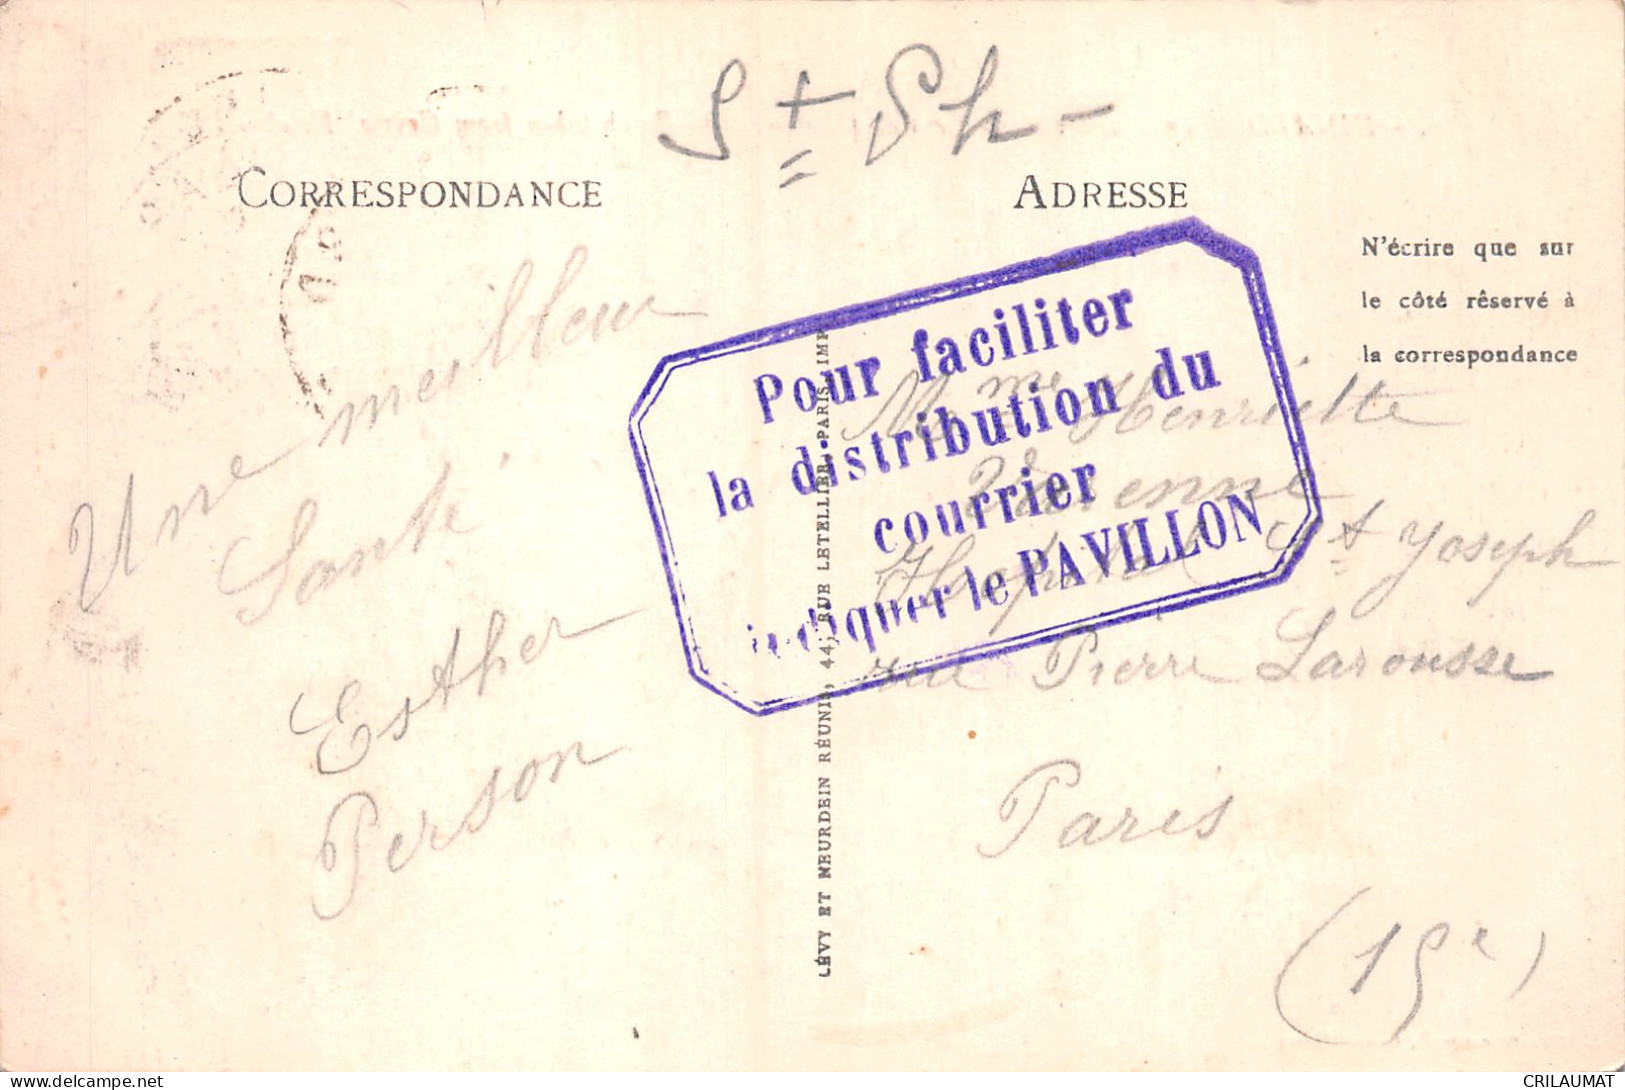 S t Ph -
CORRESPONDANCE
ADRESSE
N'écrire que sur
le côté réservé à
la correspondance
Une meilleur
Santé
Esther
Person
LÉVY ET NEURDEIN RÉUNIS, 44, RUE LETELLIER, PARIS, IMP.
Pour faciliter
la distribution du
courrier
indiquer le PAVILLON
Mme Henriette
Hopital St Joseph
rue Pierre Larousse
Paris
(15e)
CRILAUMAT